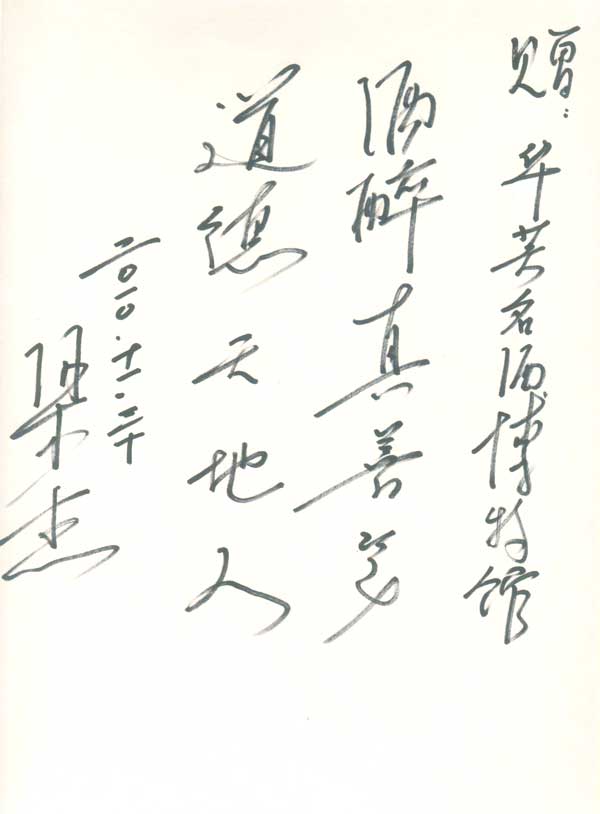 赠：华名酒博物馆
酒醉真善美
道德天地人
二〇一〇.十一.二十
杰